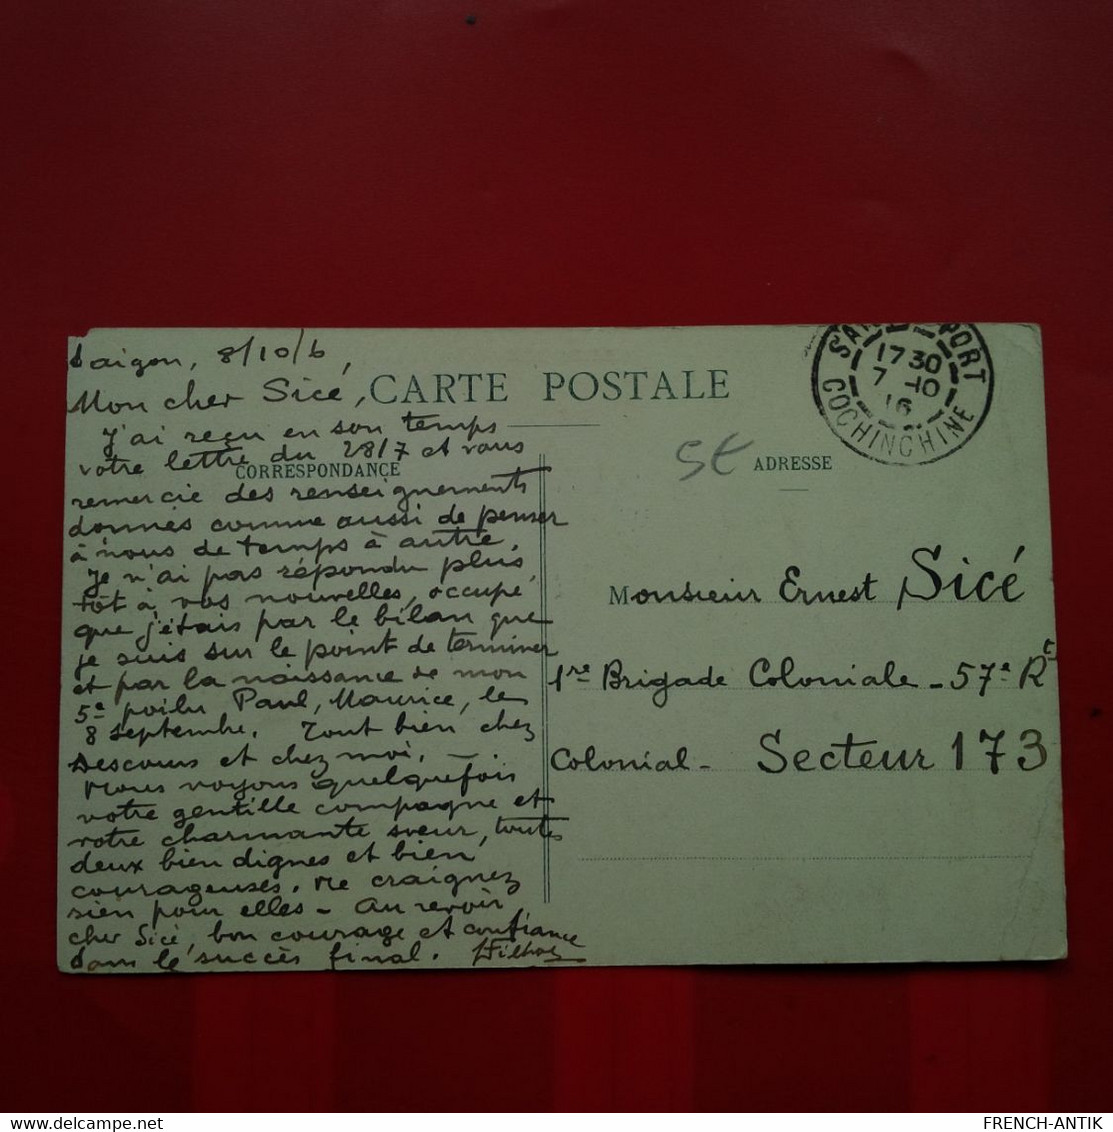 Saigon, 8/10/6,
Mon cher Sicé,
J'ai reçu en son temps
votre lettre du 28/7 et vous
remercie des renseignements
donnés comme aussi de penser
à nous de temps à autre.
Je n'ai pas répondu plus
tôt à vos nouvelles, occupé
que j'étais par le bilan que
je suis sur le point de terminer
et par la naissance de mon
5e poilu Paul, Maurice, le
8 septembre. Tout bien chez
Descours et chez moi. —
Nous voyons quelquefois
votre gentille compagne et
votre charmante sœur, toutes
deux bien dignes et bien
courageuses. Ne craignez
rien pour elles - Au revoir
cher Sicé, bon courage et confiance
dans le succès final.
CARTE POSTALE
CORRESPONDANCE
ADRESSE
5€
PORT
17 30
7 -10
16
COCHINCHINE
Monsieur Ernest Sicé
1re Brigade Coloniale - 57e Rt
Colonial - Secteur 173
FRENCH-ANTIK